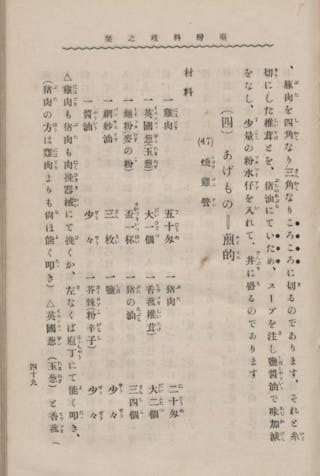 、豚肉を四角なり三角なりころころに切るのであります、それと糸
切にした椎茸とを、猪油にていため、スープを注し鹽醤油で味加減
をなし、少量の粉水仔を入れて、丼に盛るのであります
(四) あげもの＝煎的
(47) 燒雞管
材料
一雞肉 五十匁 一猪肉 二十匁
一英國葱(玉葱) 大一個 一香菰(椎茸) 大二個
一麵粉(麥の粉) 壹一杯 一猪の油 三四個
一網紗油 三枚 一鹽 少々
一醤油 少々 一芥辣粉(辛子) 少々
△雞肉も猪肉も肉挽器械にて挽くか、左なくば庖丁にて能く叩き、
(猪肉の方は雞肉よりも尚ほ能く叩き)△英國葱(玉葱)と香菰(
四十九